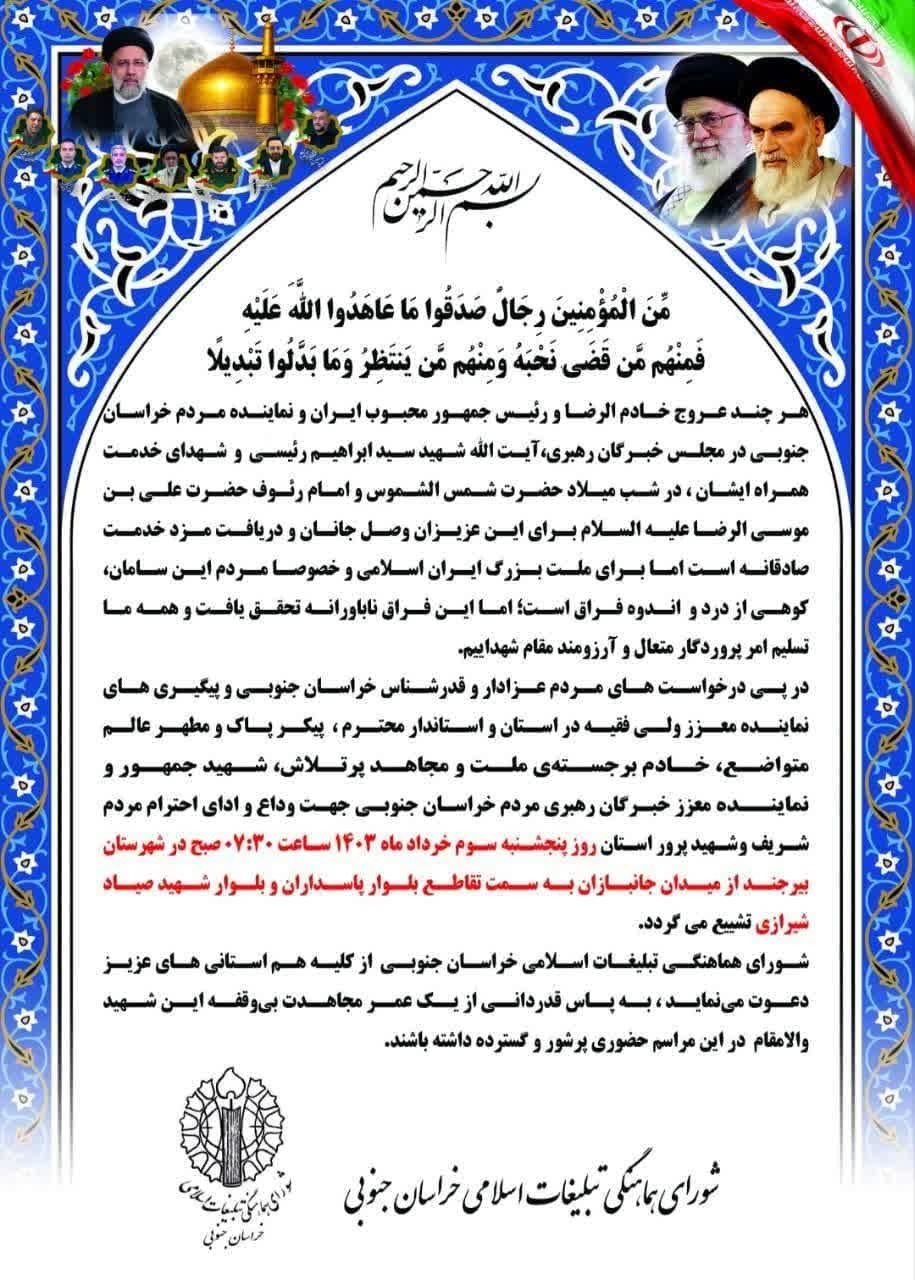 بسم الله الرحمن الرحیم
مِّنَ الْمُؤْمِنِينَ رِجَالٌ صَدَقُوا مَا عَاهَدُوا اللَّهَ عَلَيْهِ
فَمِنْهُم مَّن قَضَى نَحْبَهُ وَمِنْهُم مَّن يَنتَظِرُ وَمَا بَدَّلُوا تَبْدِيلًا
هر چند عروج خادم الرضا و رئیس جمهور محبوب ایران و نماینده مردم خراسان
جنوبی در مجلس خبرگان رهبری،آیت الله شهید سید ابراهیم رئیسی و شهدای خدمت
همراه ایشان ، در شب میلاد حضرت شمس الشموس و امام رئوف حضرت علی بن
موسی الرضا علیه السلام برای این عزیزان وصل جانان و دریافت مزد خدمت
صادقانه است اما برای ملت بزرگ ایران اسلامی و خصوصا مردم این سامان،
کوهی از درد و اندوه فراق است؛ اما این فراق ناباورانه تحقق یافت و همه ما
تسلیم امر پروردگار متعال و آرزومند مقام شهداییم.
در پی درخواست های مردم عزادار و قدرشناس خراسان جنوبی و پیگیری های
نماینده معزز ولی فقیه در استان و استاندار محترم ، پیکر پاک و مطهر عالم
متواضع، خادم برجسته‌ی ملت و مجاهد پرتلاش، شهید جمهور و
نماینده معزز خبرگان رهبری مردم خراسان جنوبی جهت وداع و ادای احترام مردم
شریف وشهید پرور استان روز پنجشنبه سوم خرداد ماه ۱۴۰۳ ساعت ۰۷:۳۰ صبح در شهرستان
بیرجند از میدان جانبازان به سمت تقاطع بلوار پاسداران و بلوار شهید صیاد
شیرازی تشییع می گردد.
شورای هماهنگی تبلیغات اسلامی خراسان جنوبی از کلیه هم استانی های عزیز
دعوت می‌نماید ، به پاس قدردانی از یک عمر مجاهدت بی‌وقفه این شهید
والامقام در این مراسم حضوری پرشور و گسترده داشته باشند.
شورای هماهنگی تبلیغات اسلامی خراسان جنوبی
شورای هماهنگی تبلیغات اسلامی
خراسان جنوبی